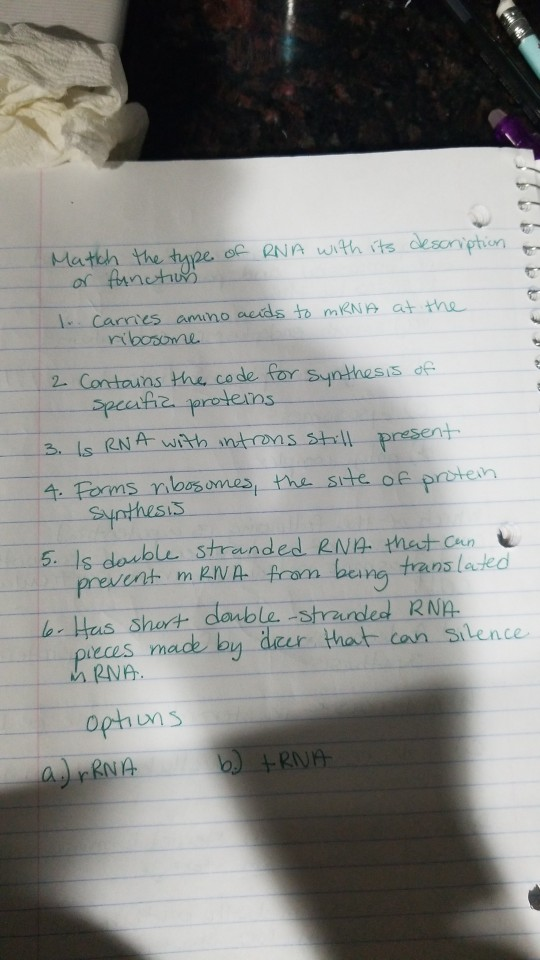 Match the type of RNA with its description
or function
1. Carries amino acids to mRNA at the
ribosome
2. Contains the code for synthesis of
specific proteins
3. Is RNA with introns still present.
4. Forms ribosomes, the site of protein
synthesis
5. Is double stranded RNA that can
prevent mRNA from being translated
6- Has short double-stranded RNA
pieces made by dicer that can silence
mRNA.
options
a.) rRNA b.) tRNA